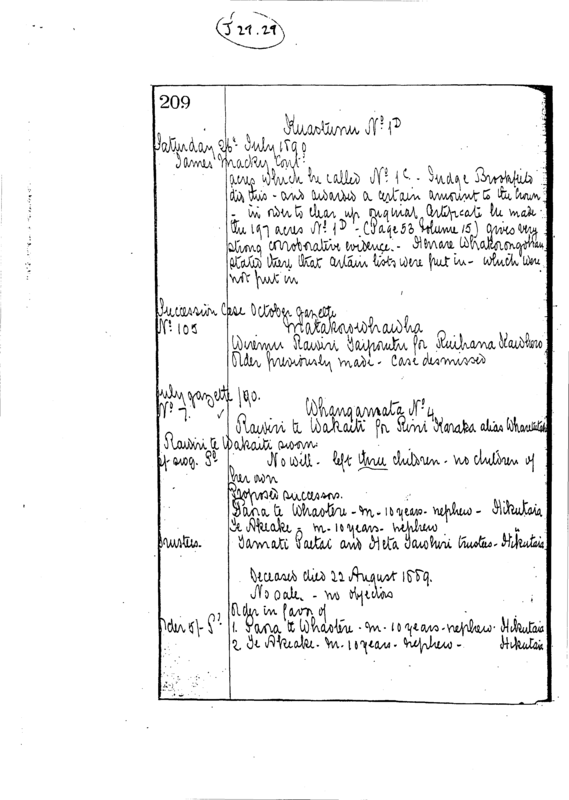 J 29.29
209
Kuaotunu No 1D
Saturday 26th July 1890
James Mackay Contd
acres which he called No 1C - Judge Brookfield
did this - and awarded a certain amount to the Crown
- in order to clear up original Certificate he made
the 197 acres No 1D - (Page 53 Volume 15) gives very
strong corroborative evidence. -
stated there that certain lists were put in - which were
not put in
Succession Case October gazette
No 105
Matakorowhawha
Wiremu Rawiri Taipourutu for Ruihana Kawhero
Order previously made - Case dismissed
July gazette /90.
No 7.
Whangamata No 4
Rawiri te Wakaiti for Rini Karaka alias
Rawiri te Wakaiti sworn
No will - left three children - no children of
her own
Proposed successors.
Pana te Whaotere - m - 10 years - nephew - Hikutaia
Te Akeake - m - 10 years - nephew "
Trustees. Tamati Paetai and Heta Tawhiri trustees - Hikutaia
Deceased died 22 August 1889.
No sale - no objectors
Order in favor of
Order of Sn 1. Pana te Whaotere - m - 10 years - nephew - Hikutaia
2 Te Akeake - m - 10 years - nephew - Hikutaia